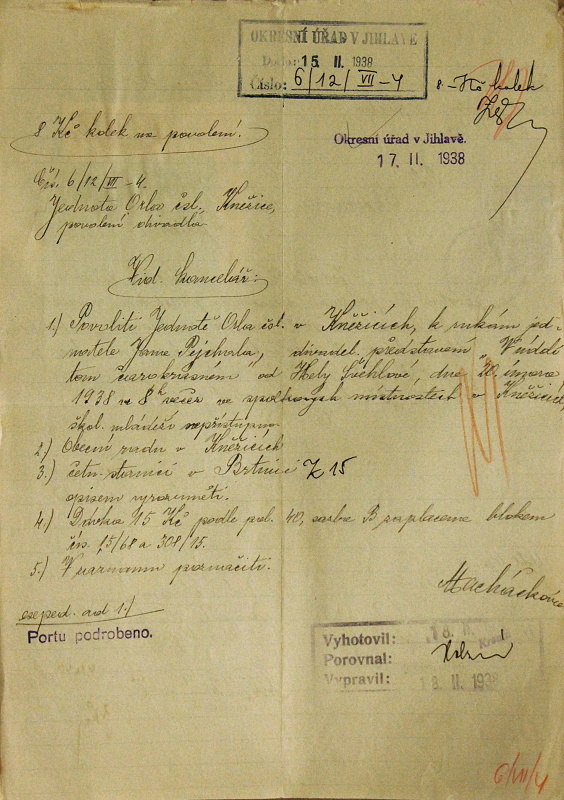 OKRESNÍ ÚŘAD V JIHLAVĚ
Došlo: 15. II. 1938
Číslo: 6/12/VII-4
8.- Kč kolek
8 Kč kolek na povolení.
Okresní úřad v Jihlavě.
17. II. 1938
Čís. 6/12/VII-4.
Jednota Orla čsl. Kněžice,
povolení divadla.
Vid. kancelář:
1.) Povoliti Jednotě Orla čsl. v Kněžicích, k rukám jed-
natele Jana Pejchala, divadel. představení „V údolí
tom čarokrásném" od Hely Švéhlové, dne 20. února
1938 v 8h večer ve spolkových místnostech v Kněžicích,
škol. mládeži nepřístupno.
2.) Obecní radu v Kněžicích
3.) četn. stanici v Brtnici Z 15
opisem vyrozuměti.
4.) Dávka 15 Kč podle pol. 40, sazba B zaplacena blokem
čís. 15/68 a 308/15.
5.) V seznamu poznačiti.
Macháčková
exped. ad 1.)
Portu podrobeno.
Vyhotovil: 18. II.
Porovnal:
Vypravil: 18. II. 1938
6/VII/4